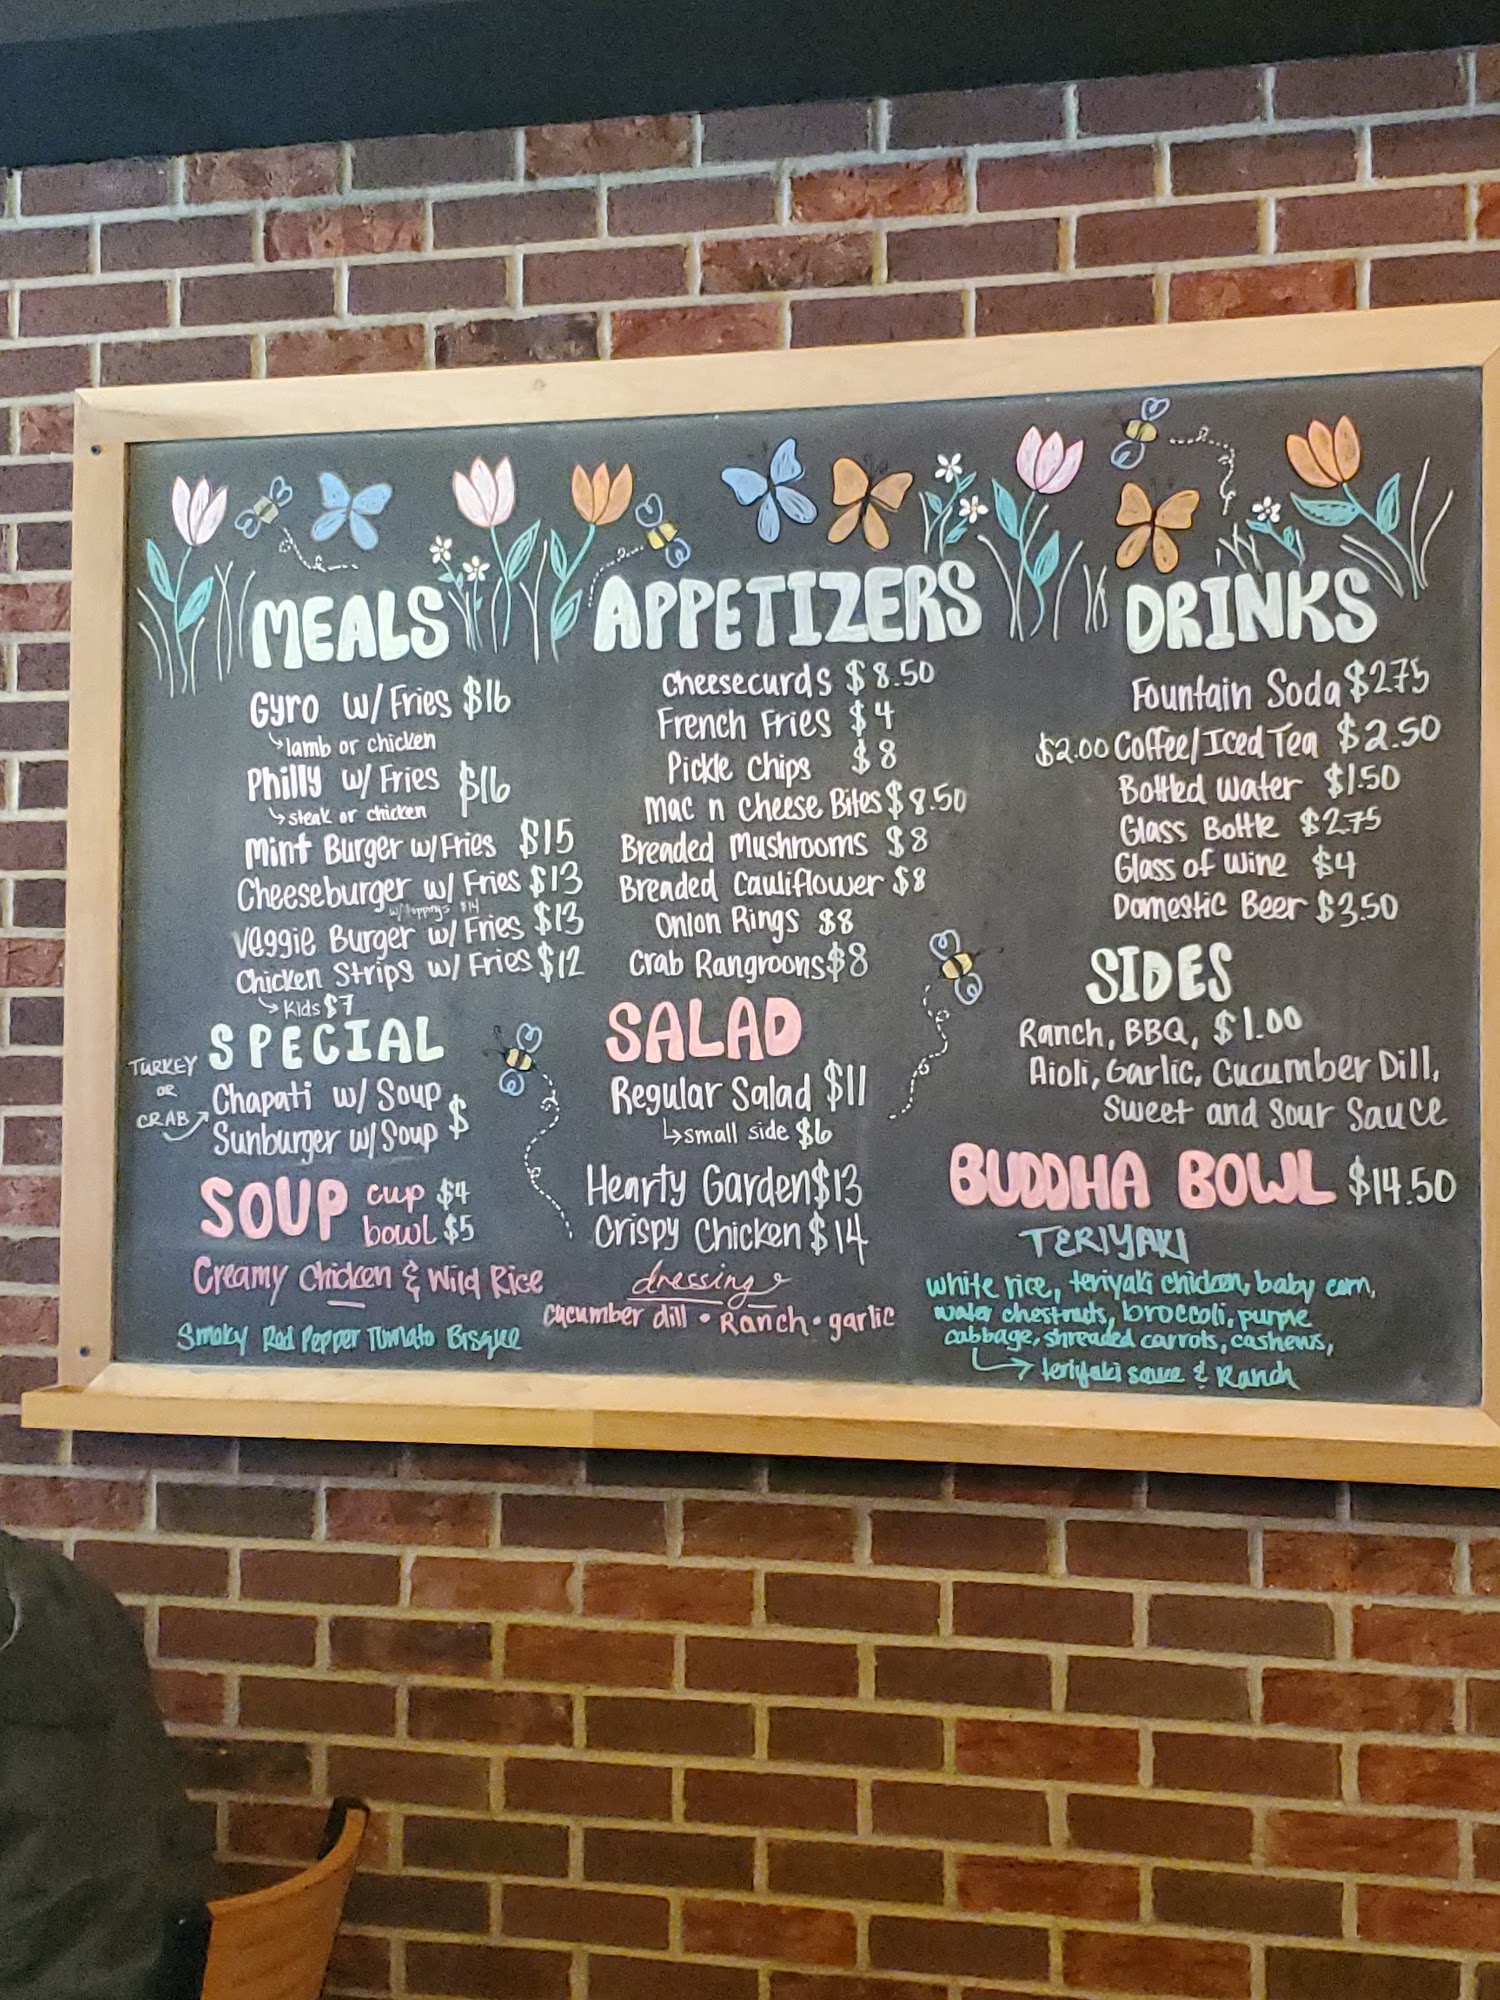 MEALS
Gyro w/ Fries $16
lamb or chicken
Philly w/ Fries $16
steak or chicken
Mint Burger w/ Fries $15
Cheeseburger w/ Fries $13
w/ toppings $14
Veggie Burger w/ Fries $13
Chicken Strips w/ Fries $12
Kids $7
SPECIAL
TURKEY
OR
CRAB
Chapati w/ Soup
Sunburger w/ Soup $
SOUP cup $4
bowl $5
Creamy Chicken & Wild Rice
Smoky Red Pepper Tomato Bisque
APPETIZERS
Cheesecurds $8.50
French Fries $4
Pickle Chips $8
Mac n Cheese Bites $8.50
Breaded Mushrooms $8
Breaded Cauliflower $8
Onion Rings $8
Crab Rangroons $8
SALAD
Regular Salad $11
small side $6
Hearty Garden $13
Crispy Chicken $14
dressings
cucumber dill • Ranch • garlic
DRINKS
Fountain Soda $2.75
$2.00 Coffee/Iced Tea $2.50
Bottled water $1.50
Glass Bottle $2.75
Glass of wine $4
Domestic Beer $3.50
SIDES
Ranch, BBQ, $1.00
Aioli, Garlic, Cucumber Dill,
Sweet and Sour Sauce
BUDDHA BOWL $14.50
TERIYAKI
white rice, teriyaki chicken, baby corn,
water chestnuts, broccoli, purple
cabbage, shreaded carrots, cashews,
teriyaki sauce & Ranch